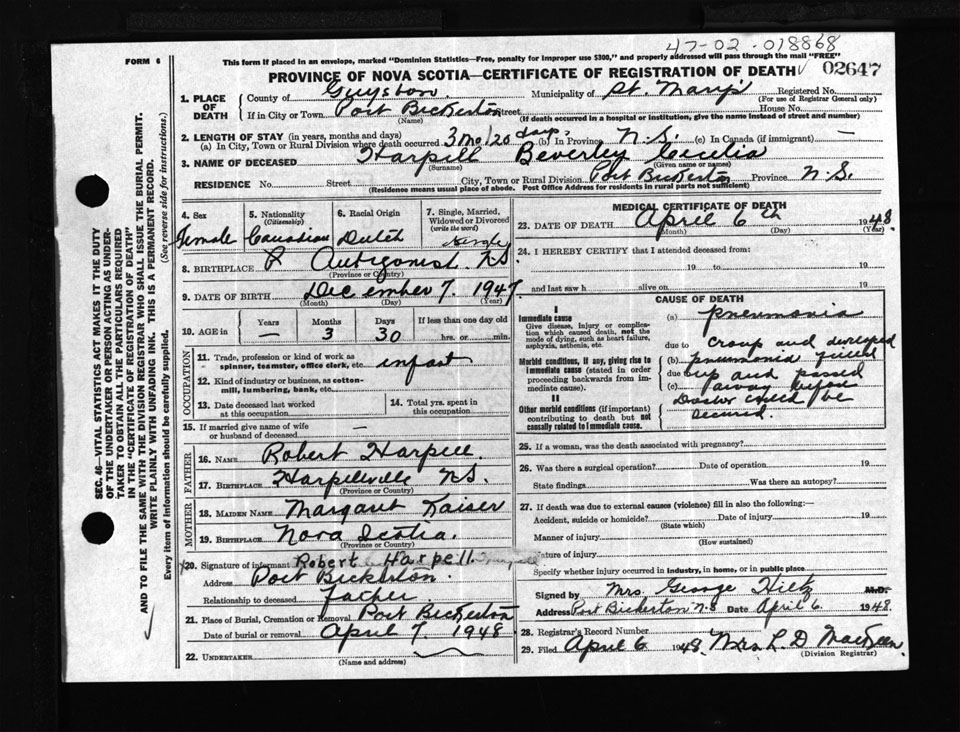 47-02-018868
FORM 6
This form if placed in an envelope, marked "Dominion Statistics—Free, penalty for improper use $300," and properly addressed will pass through the mail "FREE"
PROVINCE OF NOVA SCOTIA—CERTIFICATE OF REGISTRATION OF DEATH
02647
1. PLACE OF DEATH
County of Guysboro Municipality of St. Mary's Registered No.
(For use of Registrar General only)
If in City or Town Port Bickerton Street House No.
(Name) (If death occurred in a hospital or institution, give the name instead of street and number)
2. LENGTH OF STAY (in years, months and days)
(a) In City, Town or Rural Division where death occurred 3 mo/20 days (b) In Province N.S. (c) In Canada (if immigrant) —
3. NAME OF DECEASED Harpill Beverley Cecelia
(Surname) (Given name or names)
RESIDENCE No. Street City, Town or Rural Division Port Bickerton Province N.S.
(Residence means usual place of abode. Post Office Address for residents in rural parts not sufficient)
4. Sex Female
5. Nationality (Citizenship) Canadian
6. Racial Origin Dutch
7. Single, Married, Widowed or Divorced (write the word) Single
8. BIRTHPLACE Antigonish N.S.
(Province or Country)
9. DATE OF BIRTH December 7. 1947
(Month) (Day) (Year)
10. AGE in Years — Months 3 Days 30 If less than one day old hrs. or min.
OCCUPATION
11. Trade, profession or kind of work as spinner, teamster, office clerk, etc. infant
12. Kind of industry or business, as cotton-mill, lumbering, bank, etc.
13. Date deceased last worked at this occupation
14. Total yrs. spent in this occupation
15. If married give name of wife or husband of deceased —
FATHER
16. NAME Robert Harpell
17. BIRTHPLACE Harpellville N.S.
(Province or Country)
MOTHER
18. MAIDEN NAME Margaret Kaiser
19. BIRTHPLACE Nova Scotia.
(Province or Country)
20. Signature of informant Robert Harpell
Address Port Bickerton.
Relationship to deceased father
21. Place of Burial, Cremation or Removal Port Bickerton
Date of burial or removal April 7. 1948
22. UNDERTAKER
(Name and address)
MEDICAL CERTIFICATE OF DEATH
23. DATE OF DEATH April 6th 1948
(Month) (Day) (Year)
24. I HEREBY CERTIFY that I attended deceased from:
19 to 19
and last saw h alive on 19
CAUSE OF DEATH
I
Immediate cause
Give disease, injury or complication which caused death, not the mode of dying, such as heart failure, asphyxia, asthenia, etc.
Morbid conditions, if any, giving rise to immediate cause (stated in order proceeding backwards from immediate cause).
II
Other morbid conditions (if important) contributing to death but not causally related to immediate cause.
(a) pneumonia
due to croup and developed
(b) pneumonia
due to and passed
(c) away before
Doctor could be
secured.
25. If a woman, was the death associated with pregnancy?
26. Was there a surgical operation? Date of operation 19
State findings Was there an autopsy?
27. If death was due to external causes (violence) fill in also the following:
Accident, suicide or homicide? Date of injury 19
(State which)
Manner of injury
(How sustained)
Nature of injury
Specify whether injury occurred in industry, in home, or in public place
Signed by Mrs. George Hiltz M.D.
Address Port Bickerton N.S Date April 6. 1948.
28. Registrar's Record Number
29. Filed April 6 1948. Mrs. L. D. MacKeen.
(Division Registrar)
SEC. 46—VITAL STATISTICS ACT MAKES IT THE DUTY
OF THE UNDERTAKER OR PERSON ACTING AS UNDER-
TAKER TO OBTAIN ALL THE PARTICULARS REQUIRED
IN THE "CERTIFICATE OF REGISTRATION OF DEATH"
AND TO FILE THE SAME WITH THE DIVISION REGISTRAR WHO SHALL ISSUE THE BURIAL PERMIT.
WRITE PLAINLY WITH UNFADING INK. THIS IS A PERMANENT RECORD.
Every item of information should be carefully supplied. (See reverse side for instructions.)